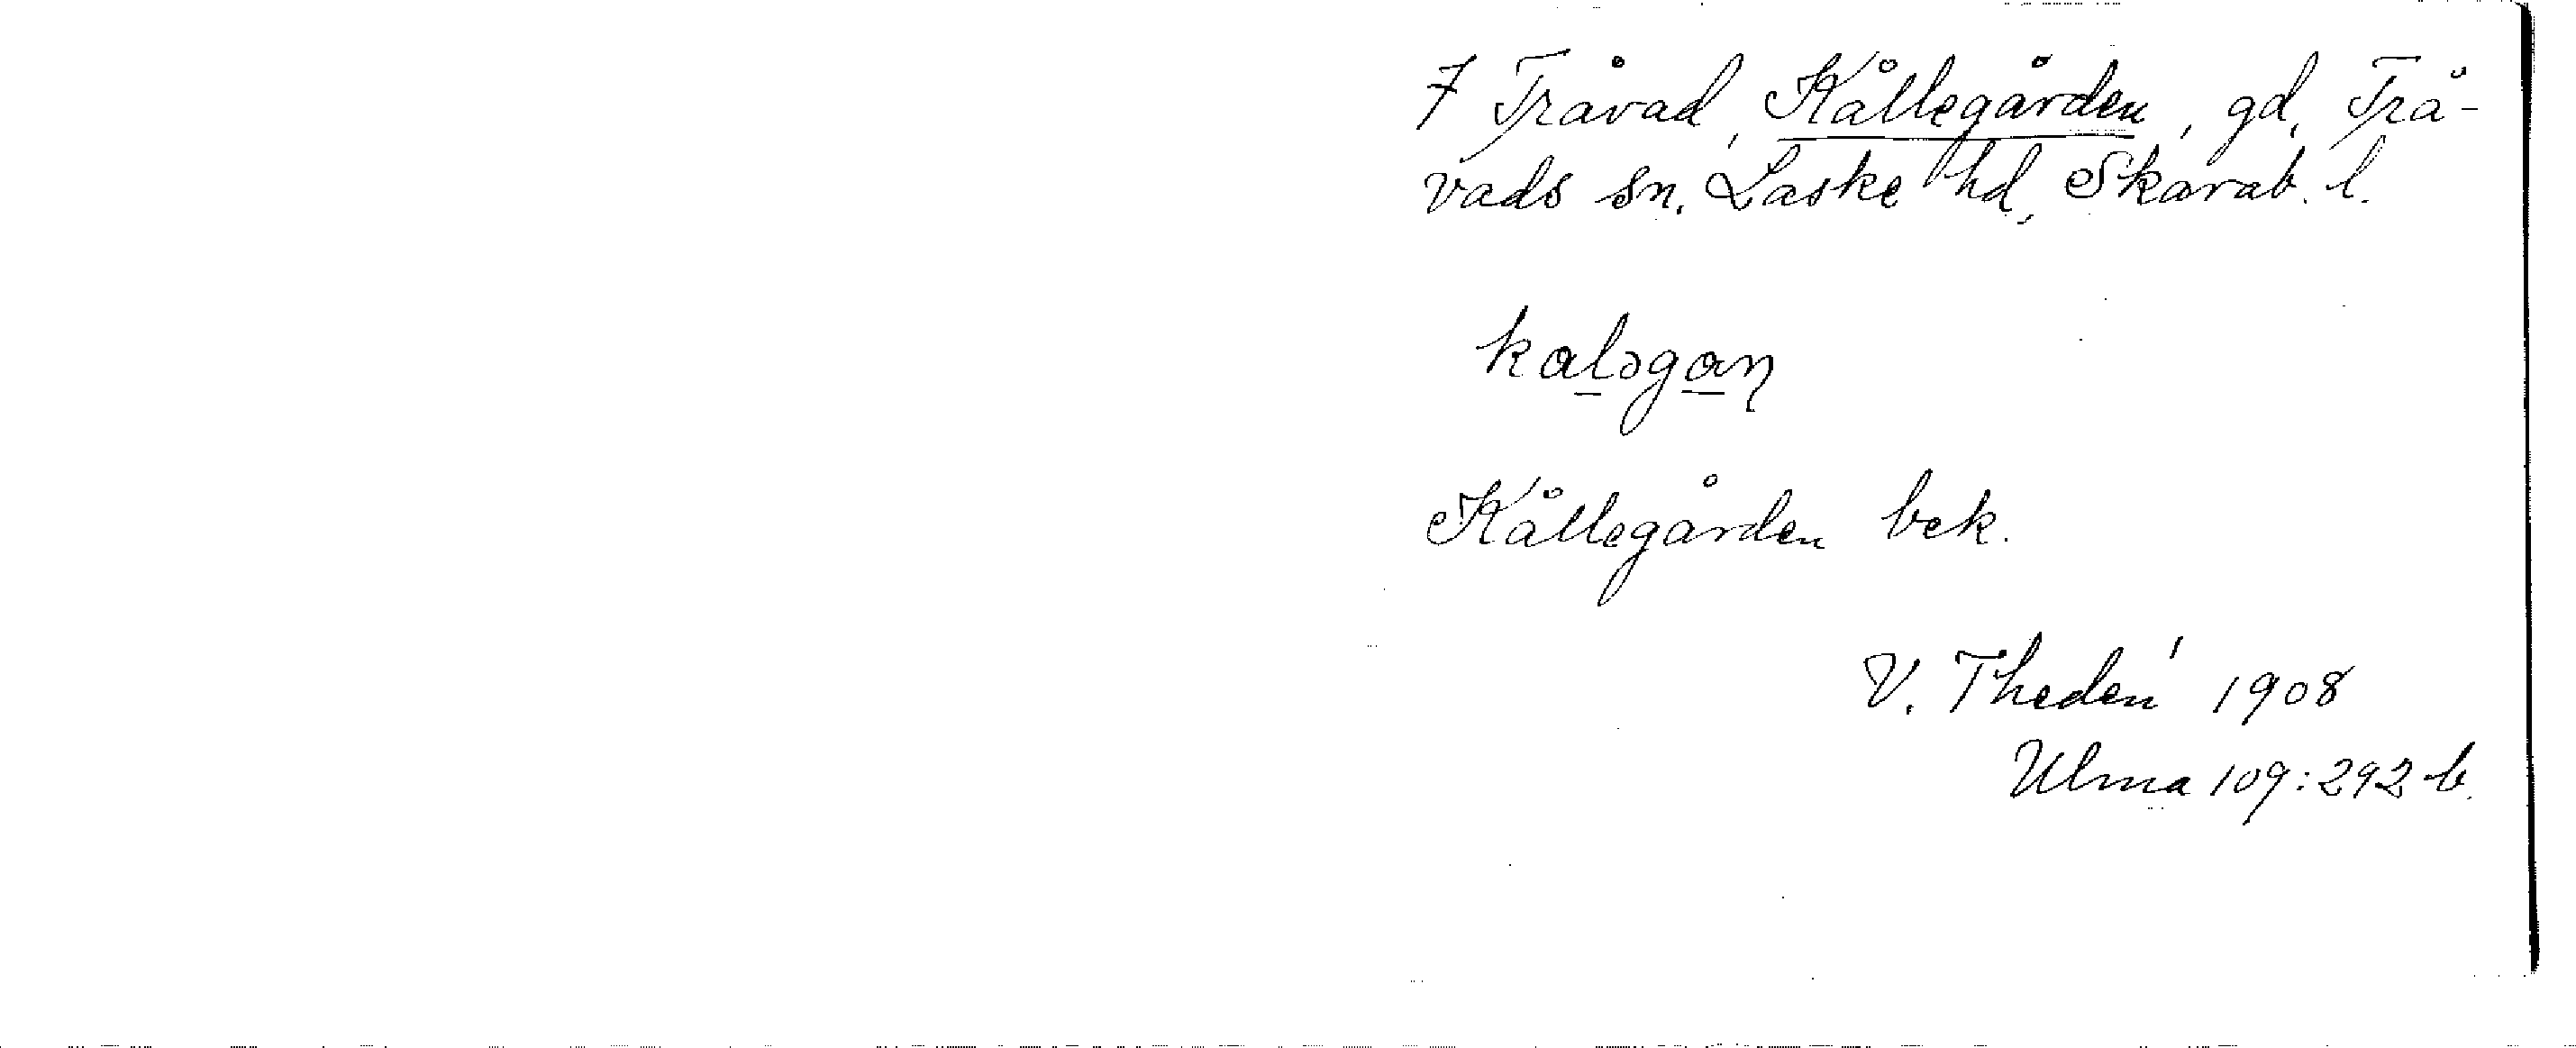 7 Tråvad, Kållegården, gd, Trå-
vads sn. Laske hd, Skarab. l.
kaləgaɳ
Kållegården bek.
V. Thedén 1908
Ulma 109:292 b.